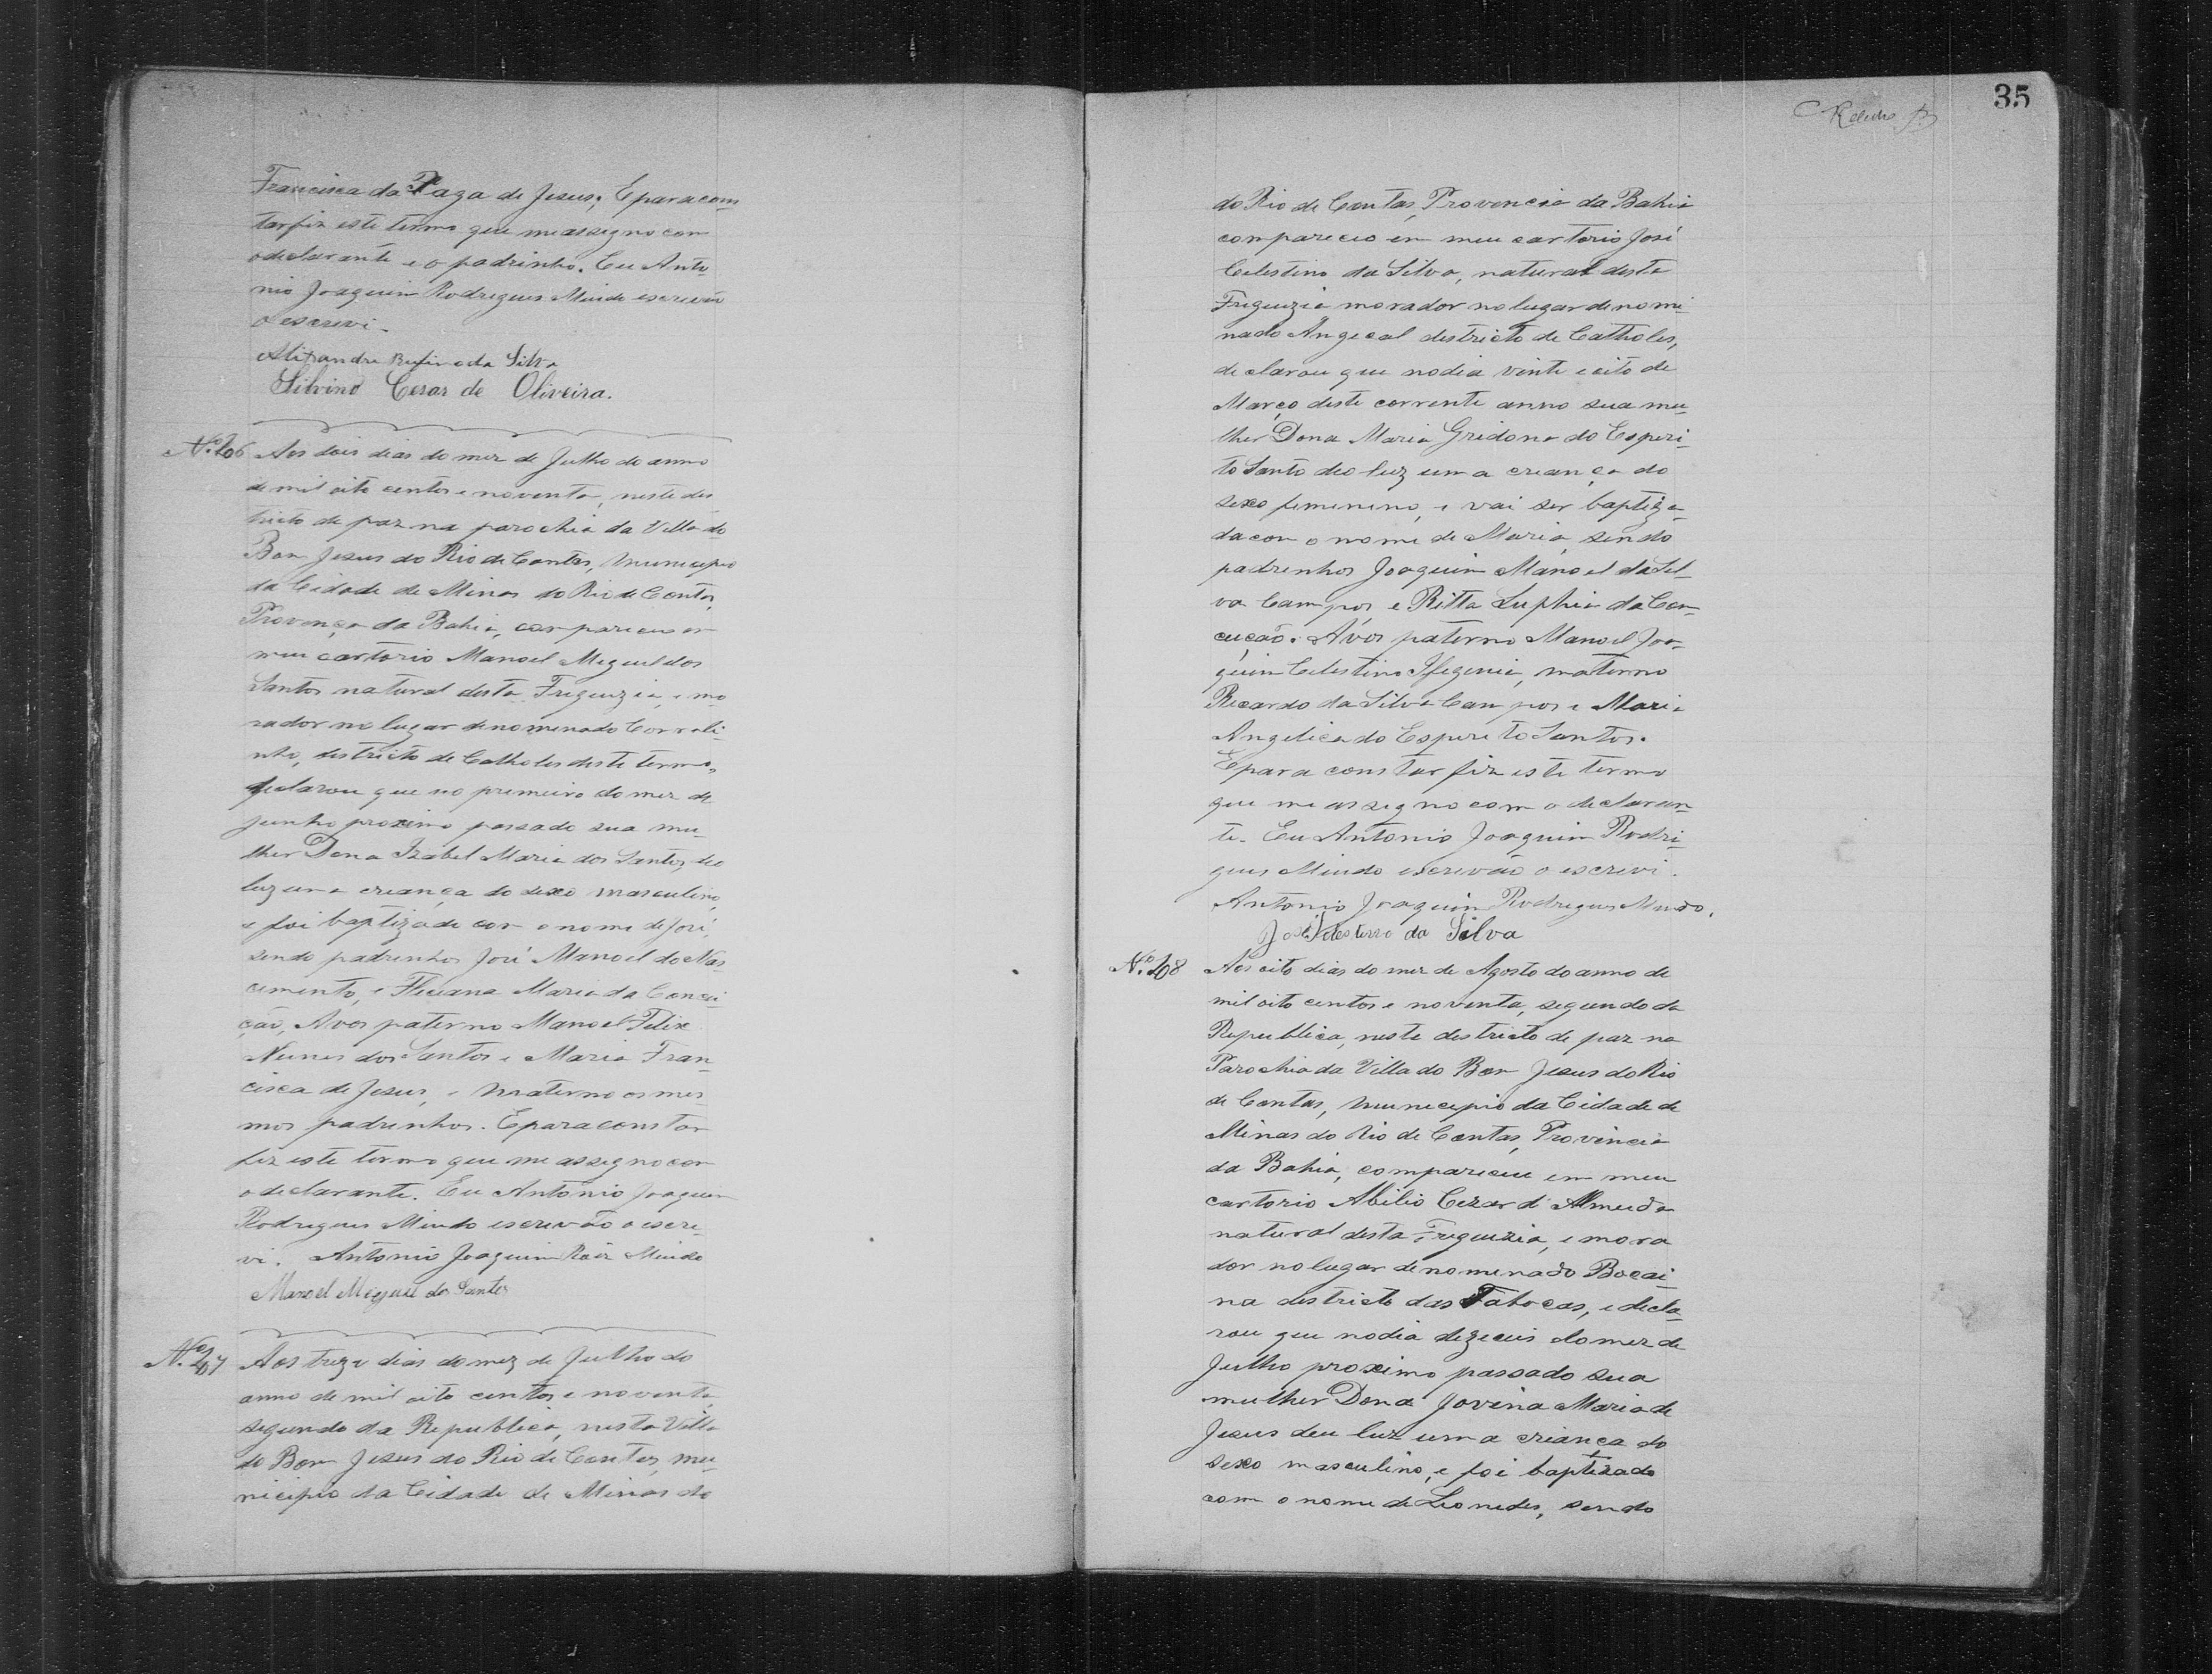 Francisca da Paga de Jesus; E para cons
tar fiz este termo que me assegno com
o declarante e o padrinho. Eu Anto
nio Joaquim Rodrigues Mindo escrivão
o escrevi.
Alixandre Rufino da Silva
Silvino Cesar de Oliveira.
Nº 206 Aos dois dias do mez de Julho do anno
de mil oito centos e noventa, neste des
tricto de paz na parochia da Villa do
Bom Jesus do Rio de Contas, Municipio
da Cidade de Minas do Rio de Contas,
Provença da Bahia, compareceu em
meu cartorio Manoel Meguel dos
Santos natural desta Freguezia, e mo
rador no lugar denominado Corrali-
nho, destricto de Catholes deste termo,
declarou que no premeiro do mez de
Junho proximo passado sua mu-
lher Dona Izabel Maria dos Santos, deo
luz uma creança do sexo masculino,
e foi baptizado com o nome de José,
sendo padrinhos José Manoel do Nas-
cimento, e Feliciana Maria da Concei-
ção, Avos paterno Manoel Felix
Nunes dos Santos e Maria Fran-
cisca de Jesus, e Materno os mes-
mos padrinhos. E para constar
fiz este termo que me assegno com
o declarante. Eu Antonio Joaquim
Rodrigues Mindo escrivão o escre-
vi. Antonio Joaquim Roiz Mindo
Manoel Miguel dos Santos
Nº 207 Aos treze dias do mez de Julho do
anno de mil oito centos e noventa,
segundo da Republica, nesta Villa
do Bom Jesus do Rio de Contas, mu-
nicipio da Cidade de Minas do
35
do Rio de Contas, Provencia da Bahia
compareceo em meu cartorio José
Celestino da Silva, natural desta
Freguezia morador no lugar denomi-
nado Angecal destricto de Catholes,
declarou que no dia vinte e oito de
Março deste corrente anno sua mu-
lher Dona Maria Gridona do Esperi-
to Santo deo luz uma creança do
sexo femenino, e vai ser baptiza-
da com o nome de Maria, sendo
padrenhos Joaquim Manoel da Sil-
va Campos e Ritta Suphia da Con-
ceição. Avos paterno Manoel Joa-
quim Celestino Ifegenia, materno
Recardo da Silva Campos e Maria
Angelica do Espereto Santos.
E para constar fiz este termo
que me assegno com o declaran-
te. Eu Antonio Joaquim Rodri-
gues Mindo escrevão o escrevi.
Antonio Joaquim Rodrigues Mindo.
José da Silva
Nº 208 Aos oito dias do mez de Agosto do anno de
mil oito centos e noventa, segundo da
Republica, neste destricto de paz na
Parochia da Villa do Bom Jesus do Rio
de Contas, Municipio da Cidade de
Minas do Rio de Contas, Provincia
da Bahia, compareceu em meu
cartorio Abilio Cezar d' Almeida
natural desta Freguezia, e mora
dor no lugar denomenado Bocai-
na destricto das Tabocas, e decla-
rou que no dia dezeceis do mez de
Julho proximo passado sua
mulher Dona Jovina Maria de
Jesus deu luz uma criança do
sexo masculino, e foi baptizado
com o nome de Leonedes, sendo